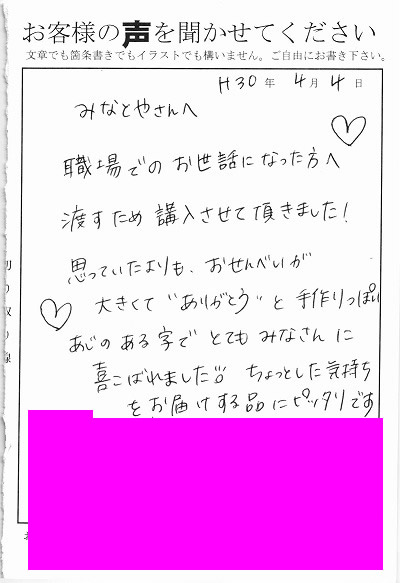 お客様の声を聞かせてください
文章でも箇条書きでもイラストでも構いません。ご自由にお書き下さい。
H30年 4月 4日
みなとやさんへ
職場でのお世話になった方へ
渡すため講入させて頂きました!
思っていたよりも、おせんべいが
大きくて"ありがとう"と手作りっぽい
あじのある字でとてもみなさんに
喜こばれました!! ちょっとした気持ち
をお届けする品にピッタリです
切り取り線